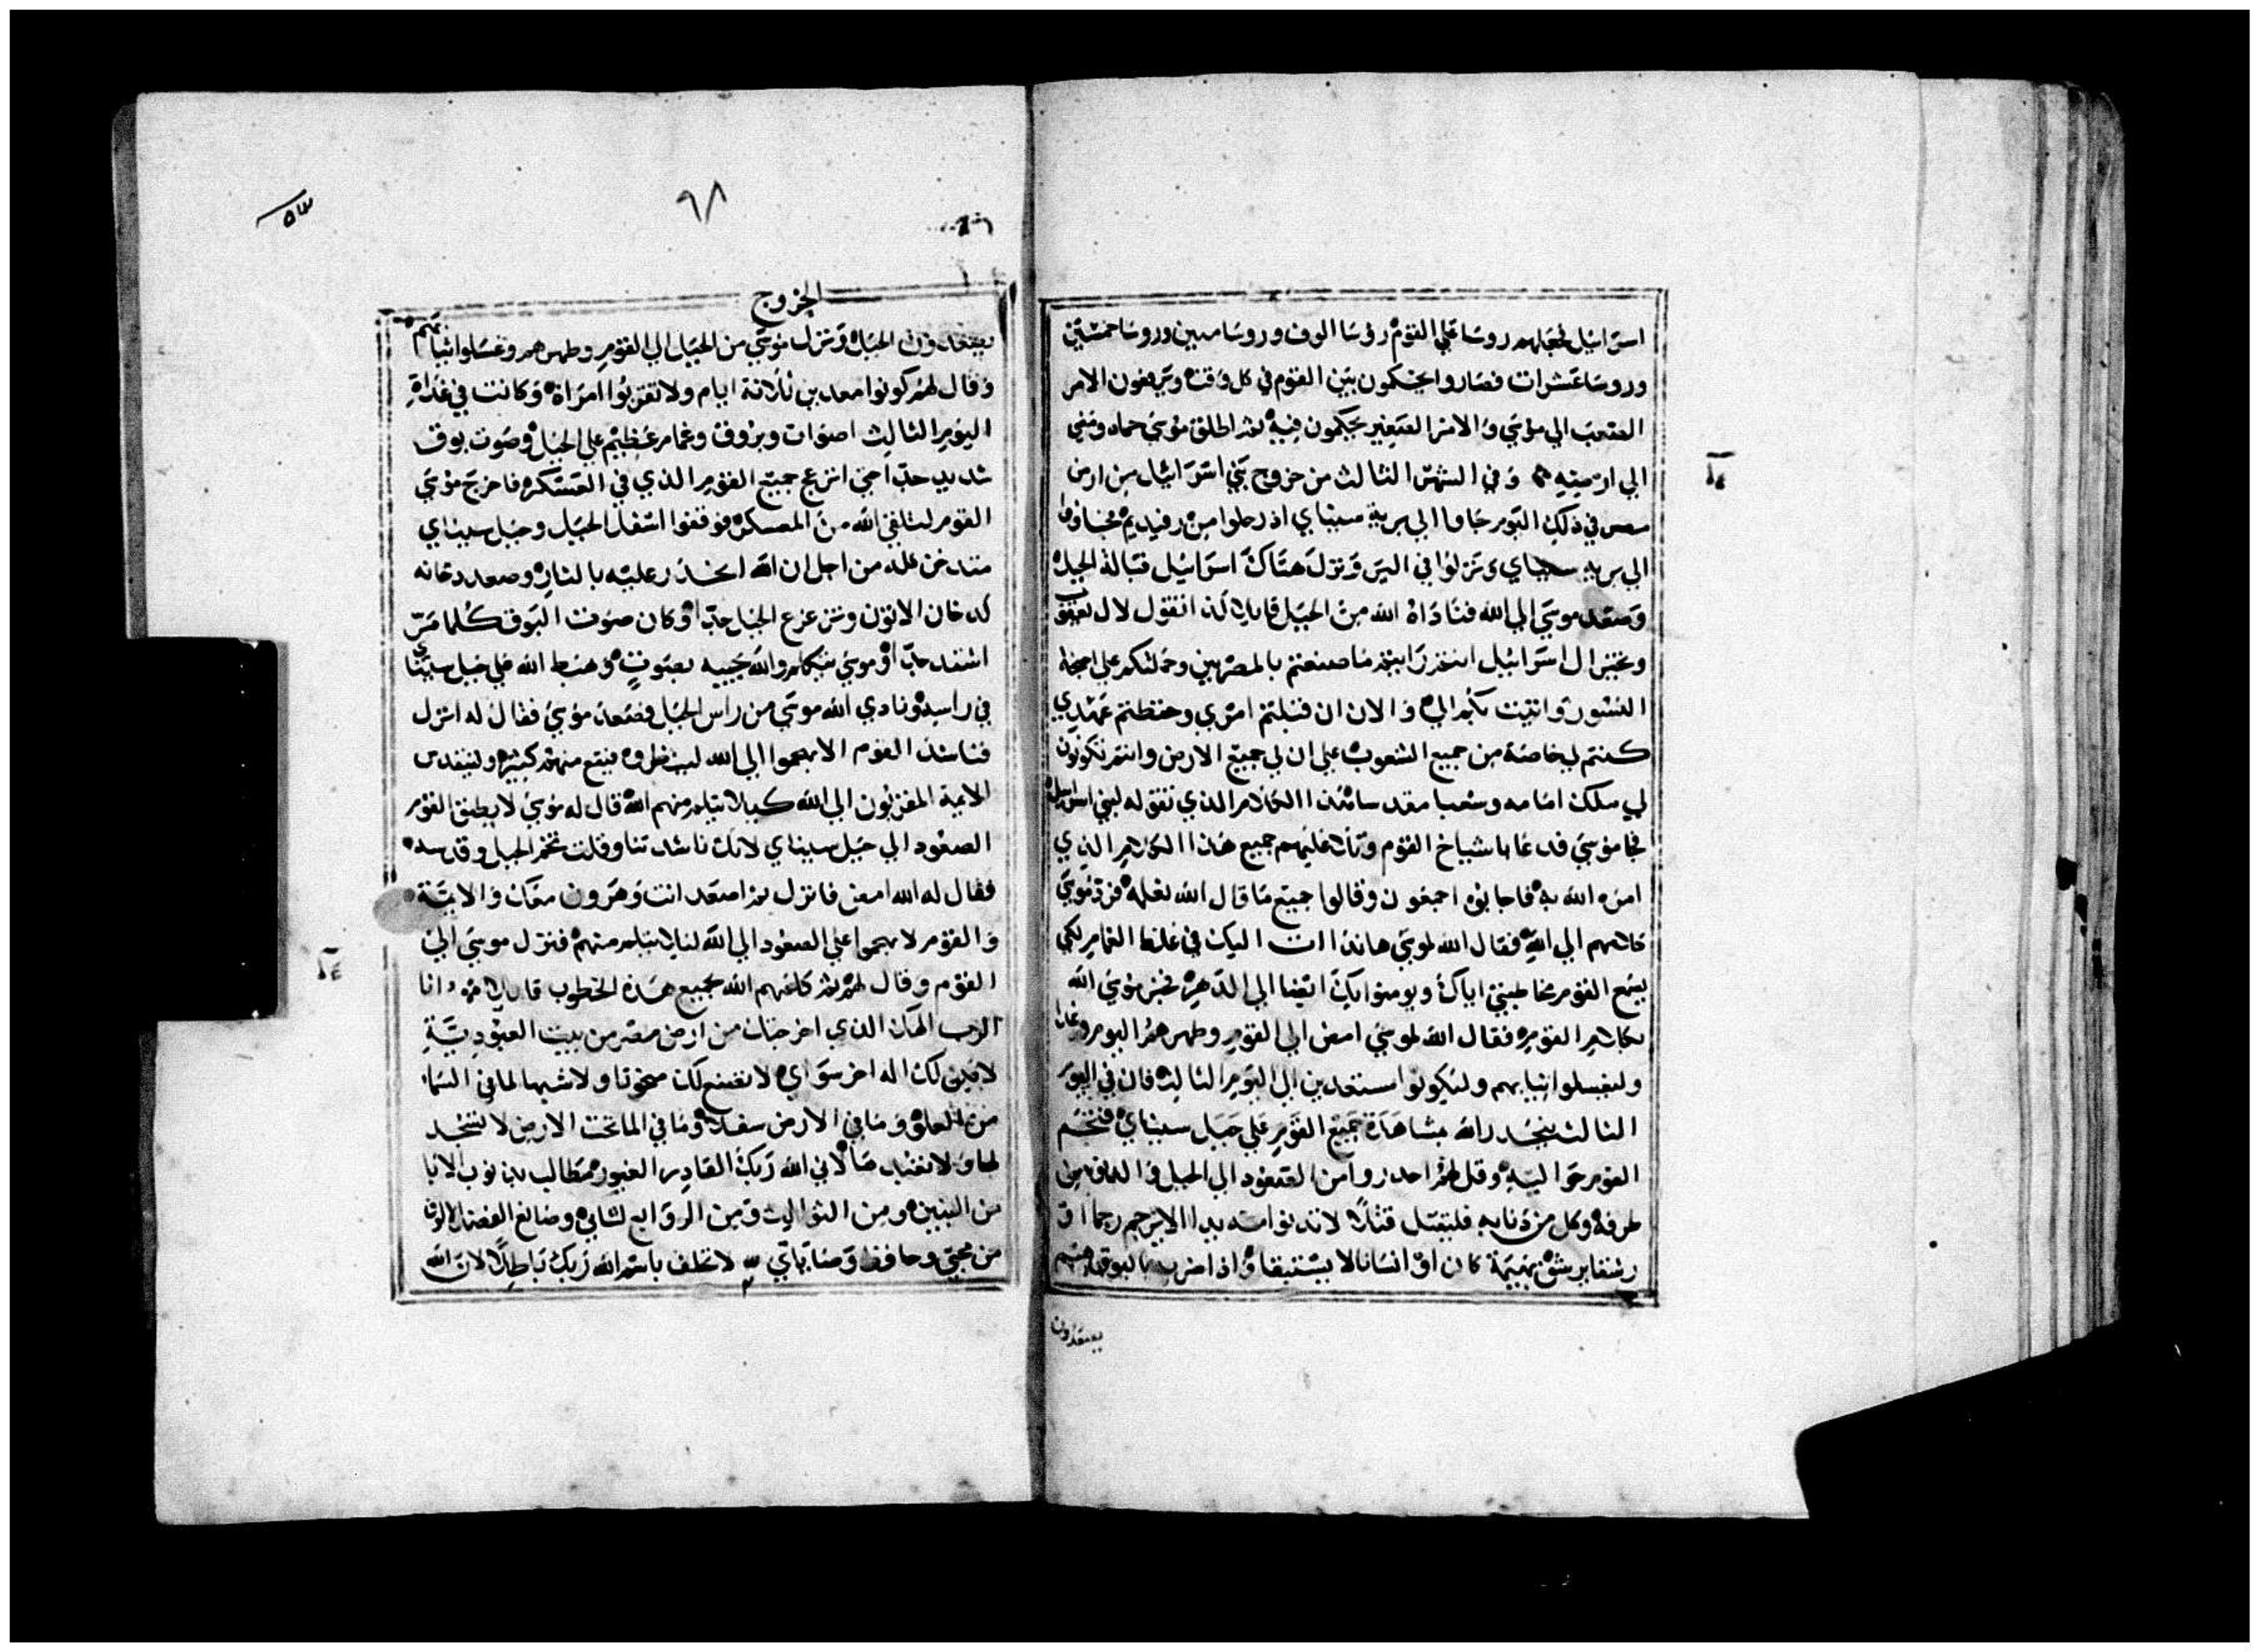 اسرائيل فجعلهم روسا علي القوم روسا الوف وروسا ميين وروسا خمسين
وروسا عشرات فصاروا يحكمون بين القوم في كل وقت ويرفعون الامر
الصعب الي موسي والامر الصغير يحكمون فيه ثم اطلق موسي حماه ومضي
الي ارضيته وفي الشهر الثالث من خروج بني اسرائيل من ارض
مصر في ذلك اليوم جاوا الي برية سيناي اذ رحلوا من رفيديم فجاوا
الي برية سيناي ونزلوا في البر ونزل هناك اسرائيل قبالة الجبل
وصعد موسي الي الله فناداه الله من الجبل قايلا كذا تقول لال يعقوب
وتخبر ال اسرائيل انتم رايتم ما صنعتم بالمصريين وحملتكم علي اجنحة
النسور واتيت بكم الي والان ان قبلتم امري وحفظتم عهدي
كنتم لي خاصة من جميع الشعوب علي ان لي جميع الارض وانتم تكونون
لي ملك امامه وشعبا مقدسا هذا الكلام الذي تقوله لبني اسراييل
فجا موسي فدعا باشياخ القوم وتلا عليهم جميع هذا الكلام الذي
امره الله به فاجابوه اجمعون وقالوا جميع ما قال الله نفعله فرد موسي
كلامهم الي الله فقال الله لموسي هانذا ات اليك في غلظ الغمام لكي
يسمع القوم مخاطبتي اياك ويومنوا بك ايضا الي الدهر فخبر موسي الله
بكلام القوم فقال الله لموسي امض الي القوم وطهرهم اليوم وغدا
وليغسلوا ثيابهم وليكونوا مستعدين الي اليوم الثالث فان في اليوم
الثالث ينحدر الله بمشاهدة جميع القوم علي جبل سيناي فتخم
القوم حواليه وقل لهم احدروا من الصعود الي الجبل والدنو من
طرفه وكل من دنا به فليقتل قتلا لا تدنوا منه يد الا يرجم رجما او
رشقا يرشق بهيمة كان او انسانا لا يستبقا واذا ضرب بالبوق هم
يصعدون
٩٨
٥٣
الخروج
يصعدون الجبل ونزل موسي من الجبل الي القوم وطهرهم وغسلوا ثيابهم
وقال لهم كونوا معدين ثلاثة ايام ولا تقربوا امراة وكانت في غداة
اليوم الثالث اصوات وبروق وغمام عظيم علي الجبل وصوت بوق
شديد جدا حتي انزعج جميع القوم الذي في العسكر فاخرج موسي
القوم لتلقي الله من المعسكر فوقفوا اسفل الجبل وجبل سيناي
مدخن كله من اجل ان الله انحدر عليه بالنار وصعد دخانه
كدخان الاتون وتزعزع الجبل جدا وكان صوت البوق كلما مر
اشتد جدا وموسي يتكلم والله يجيبه بصوت وهبط الله علي جبل سيناي
في راسه ونادي الله موسي من راس الجبل فصعد موسي فقال له انزل
فناشد القوم الا يهجموا الي الله لينظروه فيقع منهم كثير وليتقدس
الايمة المقربون الي الله كيلا يثلم منهم الله قال له موسي لا يطيق القوم
الصعود الي جبل سيناي لانك ناشدتنا وقلت تخم الجبل وقدسه
فقال له الله امض فانزل ثم اصعد انت وهرون معك والايمة
والقوم لا يهجموا علي الصعود الي الله ليلا يثلم منهم فنزل موسي الي
القوم وقال لهم ثم كلمهم الله بجميع هذه الخطوب قايلا انا
الرب الهك الذي اخرجتك من ارض مصر من بيت العبودية
لا يكن لك اله اخر سواي لا تصنع لك منحوتا ولا شبها لما في السما
من العلو وما في الارض سفلا وما في الما تحت الارض لا تسجد
لها ولا تعبدها لاني الله ربك القادر الغيور مطالب بذنوب الابا
من البنين ومن الثوالث ومن الروابع لشاني وصانع الفضل لالوف
من محبي وحافظ وصاياي لا تحلف باسم الله ربك باطلا لان الله